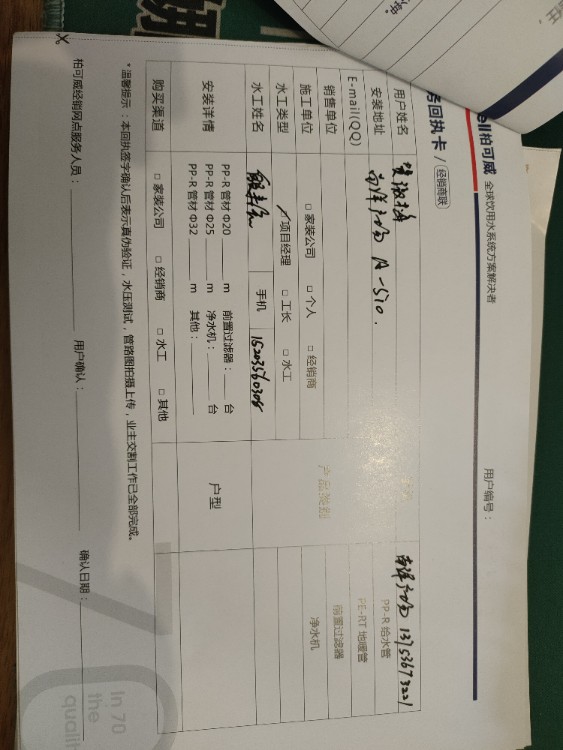 ell柏可威 全球饮用水系统方案解决者
用户编号：
房回执卡 / 经销商联
用户姓名
安装地址 南洋广场 A-510.
南洋广场 13753673221
E-mail(QQ)
PP-R 给水管
销售单位
PE-RT 地暖管
施工单位 □ 家装公司 □ 个人 □ 经销商
产品类别
前置过滤器
水工类型 项目经理 □ 工长 □ 水工
净水机
水工姓名 手机 15203560308
安装详情
PP-R 管材 Φ20 ____ m 前置过滤器：____ 台
PP-R 管材 Φ25 ____ m 净水机：____ 台
PP-R 管材 Φ32 ____ m 其他：____
户型
购买渠道 □ 家装公司 □ 经销商 □ 水工 □ 其他
*温馨提示：本回执签字确认后表示真伪验证，水压测试，管路图拍摄上传，业主交割工作已全部完成。
柏可威经销网点服务人员：____ 用户确认：____ 确认日期：____
In 70
the
qualit